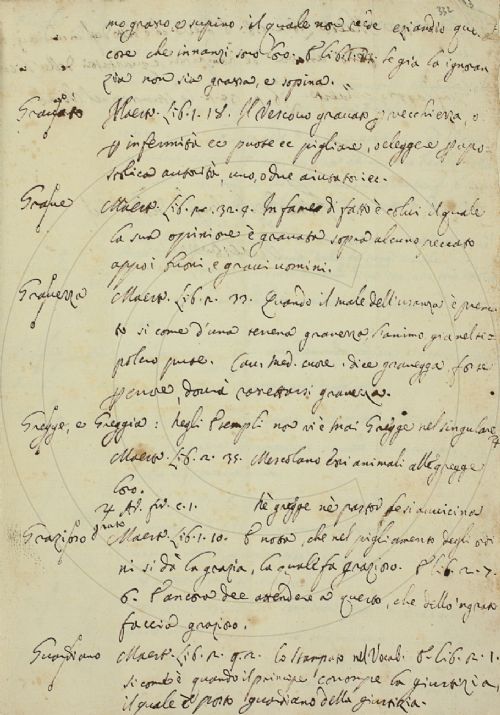 332
mo grasso, e supino, il quale non vede eziandio que
cose che innanzi sono loro. E lib. se già la ignoran
zia non sia grassa, e sopina.
Gravato Maest. Lib. 1. 18. Il Vescovo gravato p vecchiezza, o
p infermità ec puote ec pigliare, o elegge e p apo=
stolica autorità, uno, o due aiutatori ec.
Grave Maest. Lib. 32. 9. Infame di fatto è colui il quale
la sua opinione è gravata sopra alcuno peccato
appo i buoni, e gravi uomini.
Gravezza Maest. Lib. 2. 33. Quando il male dell'usanza è
to si come d'una terrena gravezza l'animo,
puose. Cav. Med. cuore. dice gravegga, forse
p errore, dovrà gravezza.
Gregge, e Greggia: Negli Esempli non vi è mai Gregge nel singulare
Maest. Lib. 2. 35. Mescolano essi animali alle gregge
loro.
Ar. fur. c. 1. Nè gregge nè pastor se si avvicina
Grazioso Maest. Lib. 1. 10. E nota, che nel pigliamento degli ordi
grato
ni si dà la grazia, la quale fa grazioso. E lib. 2. 7.
6. E ancora dee attendere a questo, che dello ingrato
faccia grazioso.
Guardiano Maest. Lib. 2. 9. 2. lo stampato nel Vocab. E Lib. 2. 1.
si com'è quando il principe corrompe la giustizia,
il quale è posto guardiano della giustizia.